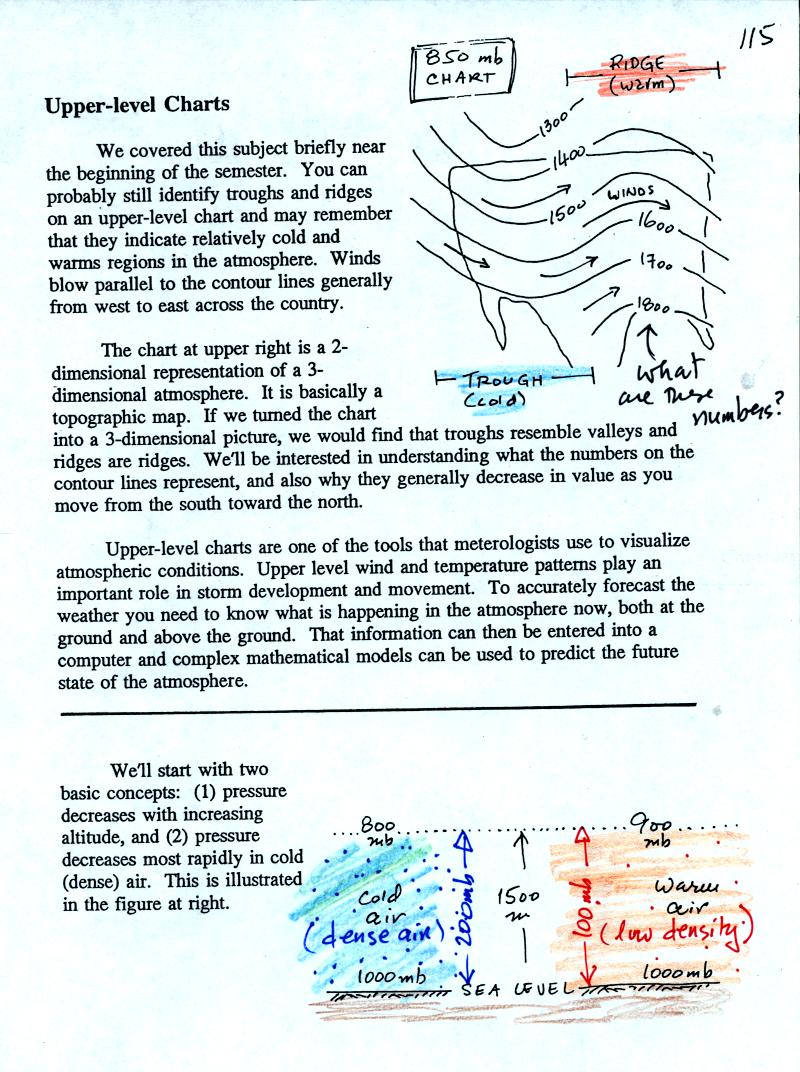 115
850 mb
CHART
RIDGE
(warm)
Upper-level Charts
We covered this subject briefly near
the beginning of the semester. You can
probably still identify troughs and ridges
on an upper-level chart and may remember
that they indicate relatively cold and
warms regions in the atmosphere. Winds
blow parallel to the contour lines generally
from west to east across the country.
1300
1400
1500
WINDS
1600
1700
1800
TROUGH
(cold)
what
are these
numbers?
The chart at upper right is a 2-
dimensional representation of a 3-
dimensional atmosphere. It is basically a
topographic map. If we turned the chart
into a 3-dimensional picture, we would find that troughs resemble valleys and
ridges are ridges. We'll be interested in understanding what the numbers on the
contour lines represent, and also why they generally decrease in value as you
move from the south toward the north.
Upper-level charts are one of the tools that meterologists use to visualize
atmospheric conditions. Upper level wind and temperature patterns play an
important role in storm development and movement. To accurately forecast the
weather you need to know what is happening in the atmosphere now, both at the
ground and above the ground. That information can then be entered into a
computer and complex mathematical models can be used to predict the future
state of the atmosphere.
We'll start with two
basic concepts: (1) pressure
decreases with increasing
altitude, and (2) pressure
decreases most rapidly in cold
(dense) air. This is illustrated
in the figure at right.
800
mb
900
mb
Cold
air
(dense air)
200mb
1500
m
100 mb
Warm
air
(low density)
1000mb
SEA LEVEL
1000mb